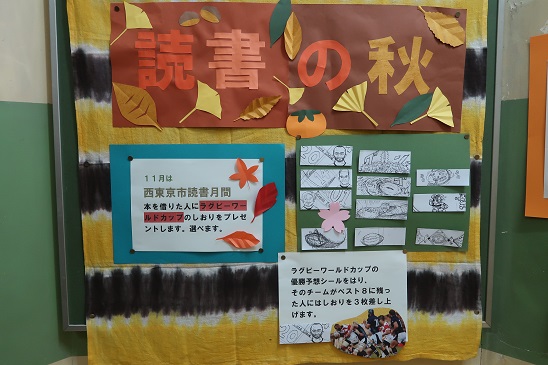 読書の秋
１１月は
西東京市読書月間
本を借りた人にラグビーワー
ルドカップのしおりをプレゼ
ントします。選べます。
ラグビーワールドカップの
優勝予想シールをはり、
そのチームがベスト８に残っ
た人にはしおりを３枚差し上
げます。